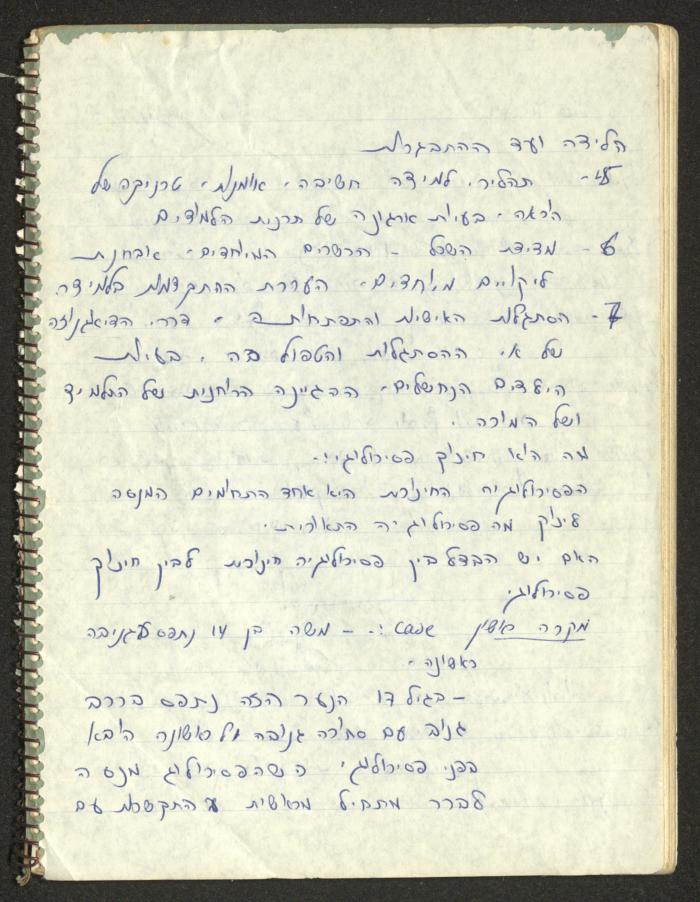 הלידה ועד ההתבגרות
5- תהליכי למידה חשיבה, אומנות, טכניקה של
הוראה - בעיות ארגונה של תכנית הלמודים
6- מדידת השכל - הכשרים המיוחדים - אבחנת
ליקויים מיוחדים - הערכת ההתקדמות בלמידה.
7- הסתגלות האישיות והתפתחות - דרכי הדיאגנוזה
של אי ההסתגלות והטפול בה, בעיות
הילדים הנחשלים - ההגיינה הרוחנית של התלמיד
ושל המורה.
מה היא חינוך פסיכולוגי:-
הפסיכולוגיה החינוכית היא אחד התחומים המנסה
מה פסיכולוגיה התאורית.
האם יש הבדל בין פסיכולוגיה חינוכית לבין חינוך
פסיכולוגי
מקרה case :- - משה בן 14 נתפס בגניבה
ראשונה -
- בגיל 17 הנער הזה נתפס ברכב
גנוב עם סחורה גנובה ראשונה הובא
בפני פסיכולוגי - הפסיכולוגי מנסה
לברר מתחיל מראשית התקשרות עם